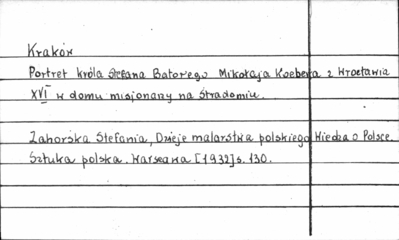 Kraków
Portret króla Stefana Batorego Mikołaja Koebera z Wrocławia
XVI w domu misjonarzy na Stradomiu.
Zahorska Stefania, Dzieje malarstwa polskiego Wiedza o Polsce.
Sztuka polska. Warszawa [1932] s. 130.